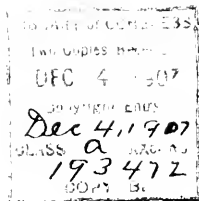 LIBRARY of CONGRESS
Two Copies Received
DEC 4 1907
Copyright Entry
Dec 4, 1907
CLASS A XXc. No.
193472
COPY B.